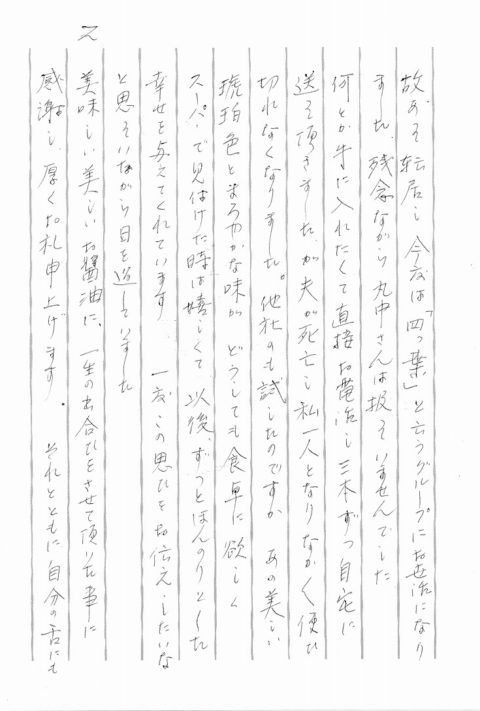 2
故あって転居し今度は「四つ葉」と云うグループにお世話になり
ました、残念ながら丸中さんは扱っていませんでした
何とか手に入れたくて直接お電話し三本ずつ自宅に
送って頂きましたが夫が死亡し私一人となりなかなか使い
切れなくなりました。他社のも試したのですが あの美しい
琥珀色とまろやかな味が どうしても食卓に欲しく
スーパーで見付けた時は嬉しくて 以後、ずっとほんのりとした
幸せを与えてくれています 一度この思いをお伝えしたいな
と思っていながら日を過していました
美味しい美しいお醤油に、一生の出合いをさせて頂いた事に
感謝し、厚くお礼申上げます。 それとともに自分の舌にも